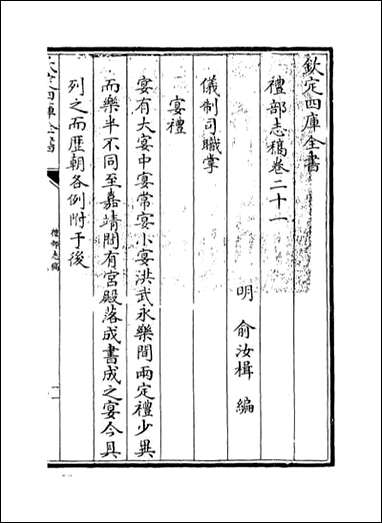 欽定四庫全書
禮部志稿卷二十一
明 俞汝楫 編
儀制司職掌
宴禮
宴有大宴中宴常宴小宴洪武永樂間兩定禮少異
而樂半不同至嘉靖間有宮殿落成書成之宴今具
列之而歷朝各例附于後
禮部志稿